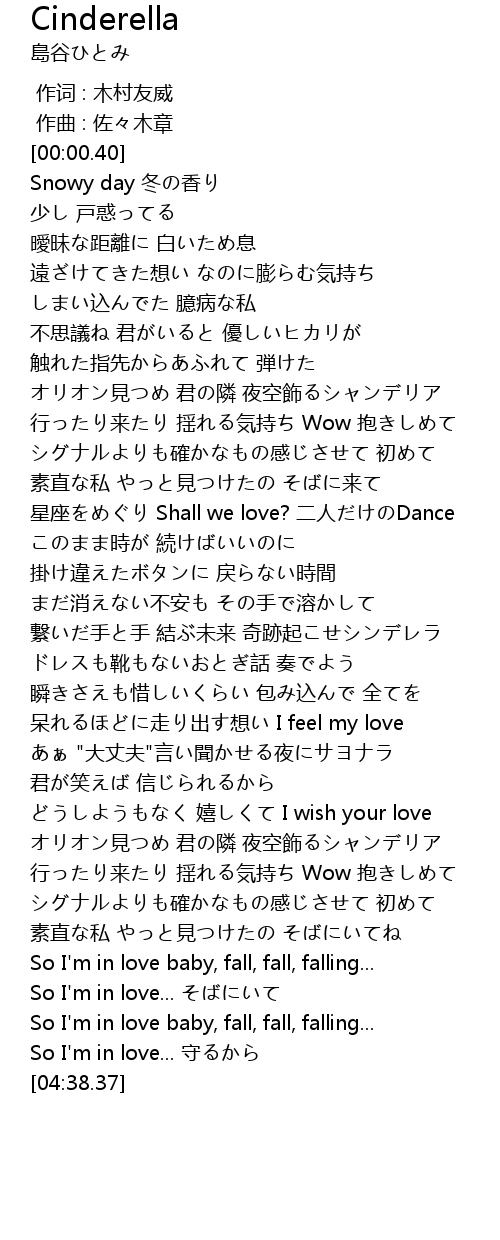 Cinderella
島谷ひとみ
作词 : 木村友威
作曲 : 佐々木章
[00:00.40]
Snowy day 冬の香り
少し 戸惑ってる
曖昧な距離に 白いため息
遠ざけてきた想い なのに膨らむ気持ち
しまい込んでた 臆病な私
不思議ね 君がいると 優しいヒカリが
触れた指先からあふれて 弾けた
オリオン見つめ 君の隣 夜空飾るシャンデリア
行ったり来たり 揺れる気持ち Wow 抱きしめて
シグナルよりも確かなもの感じさせて 初めて
素直な私 やっと見つけたの そばに来て
星座をめぐり Shall we love? 二人だけのDance
このまま時が 続けばいいのに
掛け違えたボタンに 戻らない時間
まだ消えない不安も その手で溶かして
繋いだ手と手 結ぶ未来 奇跡起こせシンデレラ
ドレスも靴もないおとぎ話 奏でよう
瞬きさえも惜しいくらい 包み込んで 全てを
呆れるほどに走り出す想い I feel my love
あぁ "大丈夫"言い聞かせる夜にサヨナラ
君が笑えば 信じられるから
どうしようもなく 嬉しくて I wish your love
オリオン見つめ 君の隣 夜空飾るシャンデリア
行ったり来たり 揺れる気持ち Wow 抱きしめて
シグナルよりも確かなもの感じさせて 初めて
素直な私 やっと見つけたの そばにいてね
So I'm in love baby, fall, fall, falling...
So I'm in love... そばにいて
So I'm in love baby, fall, fall, falling...
So I'm in love... 守るから
[04:38.37]